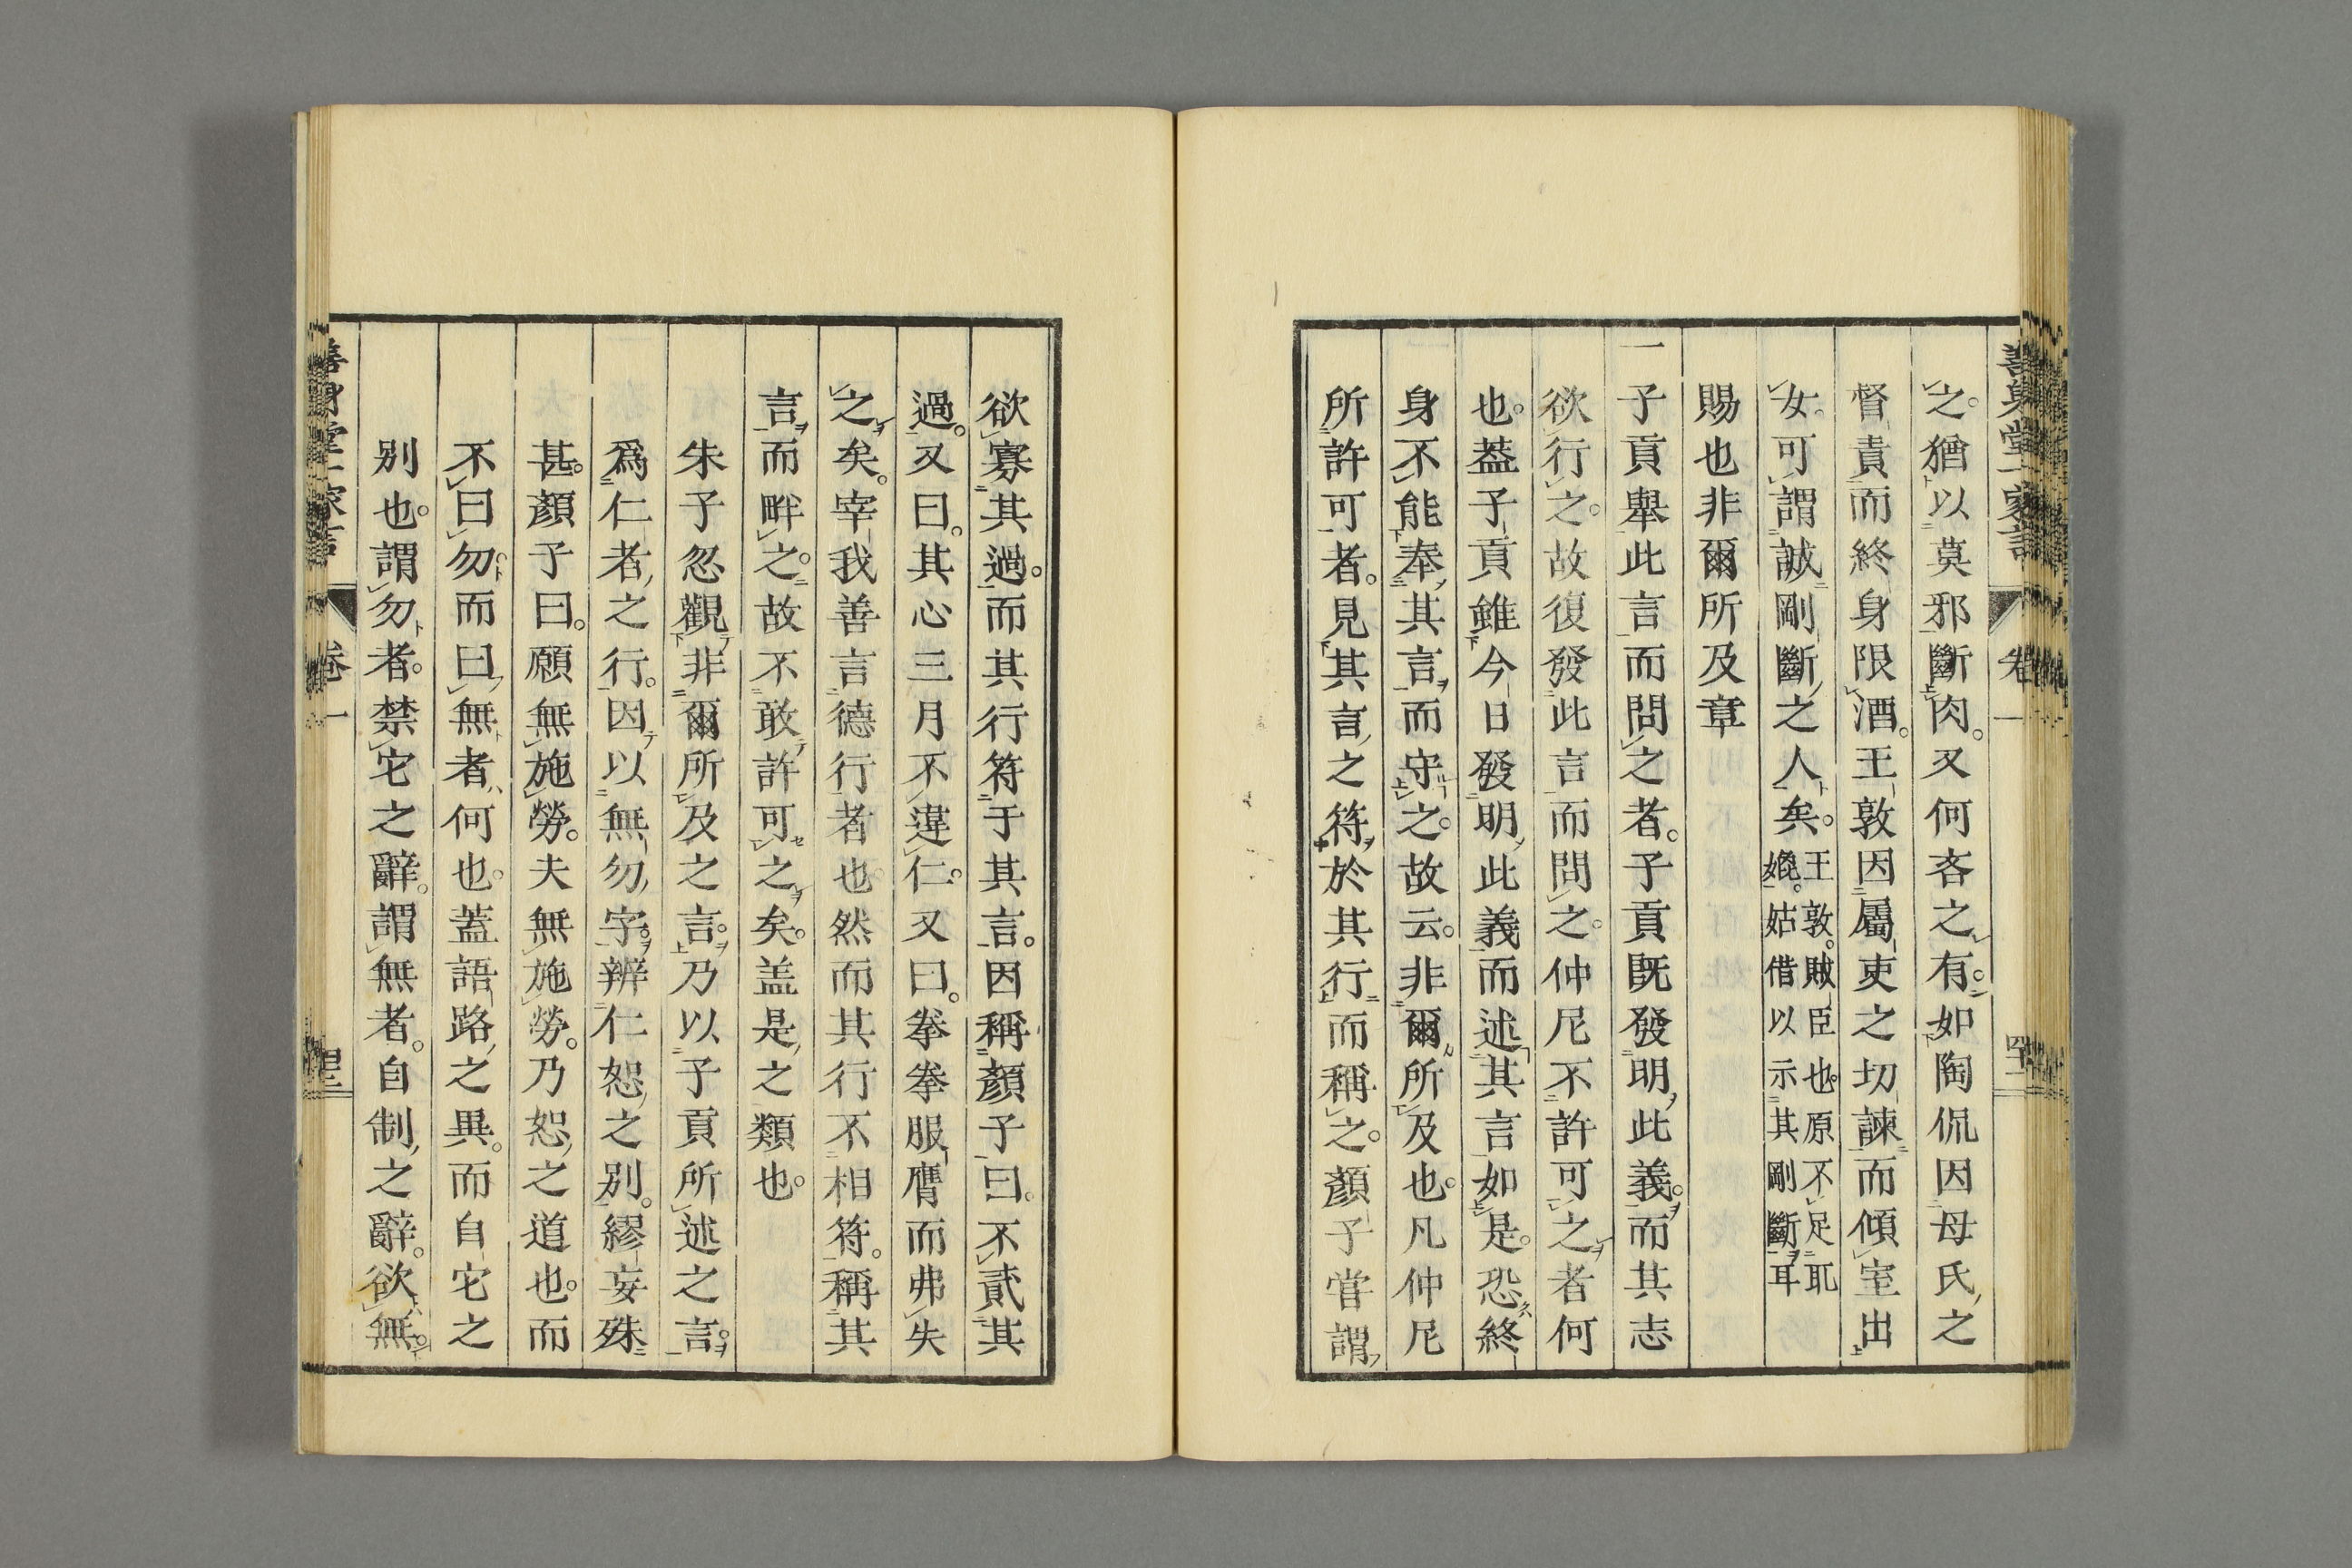 之。猶以莫邪斷肉。又何吝之有。如陶侃因母氏之
督責而終身限酒。王敦因屬吏之切諫而傾室出
女。可謂誠剛斷之人矣。王敦。賊臣也。原不足耻
婉。姑借以示其剛斷耳
賜也非爾所及章
一子貢舉此言而問之者。子貢既發明此義。而其志
欲行之。故復發此言而問之。仲尼不許可之者何
也。蓋子貢雖今日發明此義而述其言如是。恐終
身不能奉其言而守之。故云。非爾所及也。凡仲尼
所許可者。見其言之符於其行而稱之。顏子嘗謂
欲寡其過。而其行符于其言。因稱顏子曰。不貳其
過。又曰。其心三月不違仁。又曰。拳拳服膺而弗失
之矣。宰我善言德行者也。然而其行不相符。稱其
言而畔之。故不敢許可之矣。盖是之類也。
朱子忽觀非爾所及之言。乃以子貢所述之言。
爲仁者之行。因以無勿字。辨仁恕之別。繆妄殊
甚。顏子曰。願無施勞。夫無施勞。乃恕之道也。而
不曰勿而曰無者何也。蓋語路之異。而自它之
別也。謂勿者。禁它之辭。謂無者。自制之辭。欲無。
卷一